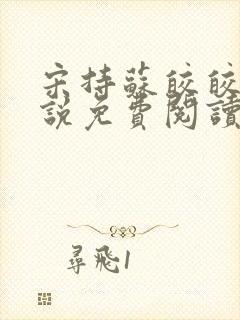 宋持蘇皎皎
說免費閱讀
尋飛1